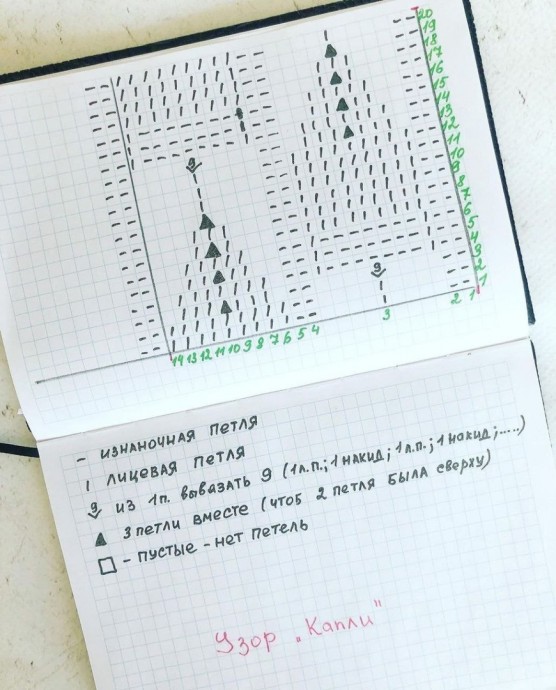 20
19
18
17
16
15
14
13
12
11
10
9
8
7
6
5
4
3
2
1
9
9
14 13 12 11 10 9 8 7 6 5 4 3 2 1
- изнаночная петля
| лицевая петля
9 из 1п. вывазать 9 (1л.п.; 1 накид; 1л.п.; 1 накид;.....)
▲ 3 петли вместе (чтоб 2 петля была сверху)
□ - пустые - нет петель
Узор „Капли"